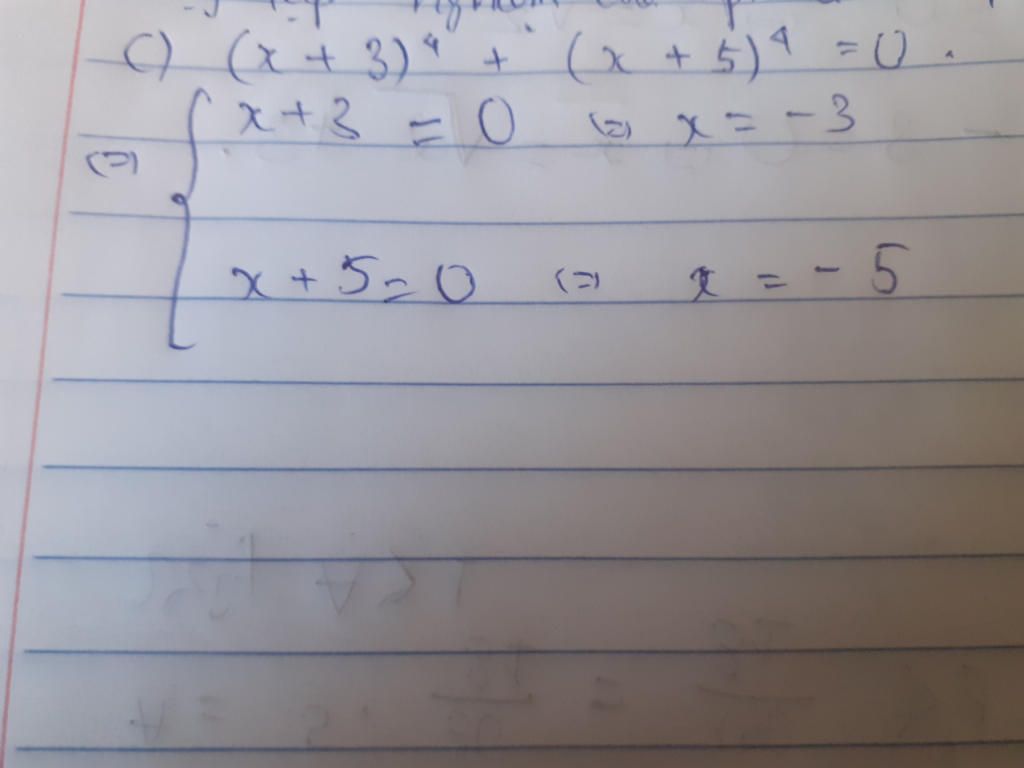 c) (x + 3)⁴ + (x + 5)⁴ = 0.
<=> { x + 3 = 0 <=> x = -3
x + 5 = 0 <=> x = -5